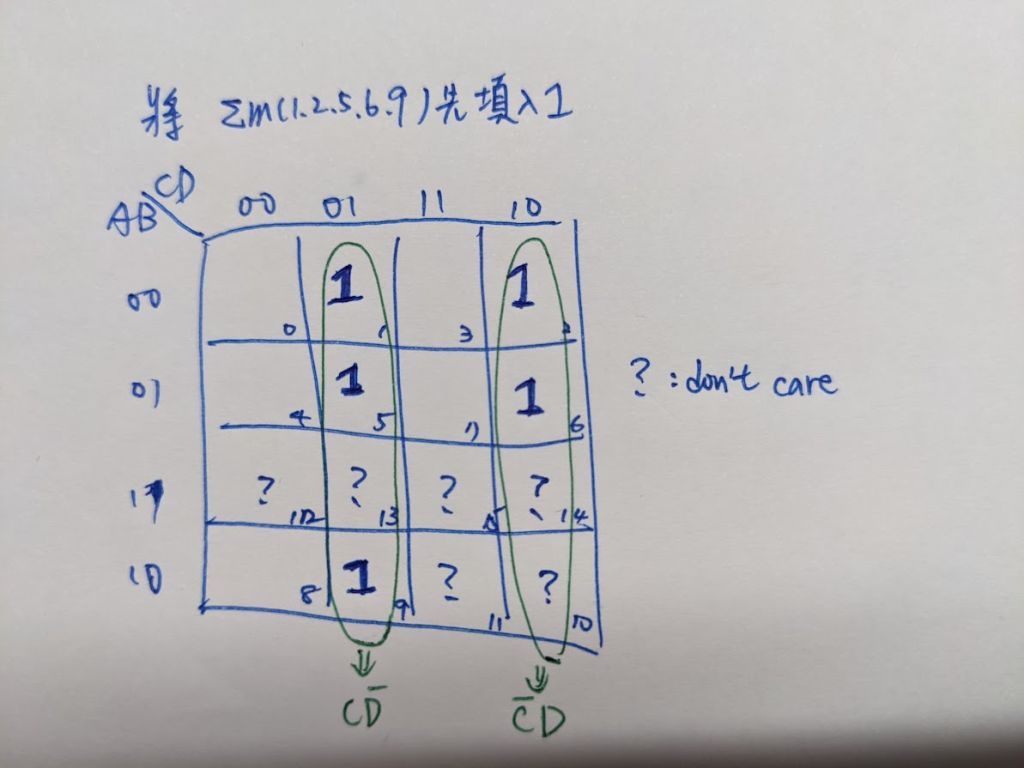 將 Σm(1.2.5.6.9)先填入1
CD
AB 00 01 11 10
00 1 1
0 1 3 2
01 1 1 ? : don't care
4 5 7 6
11 ? ? ? ?
12 13 15 14
10 1 ? ?
8 9 11 10
⇓ ⇓
CD̅ C̅D